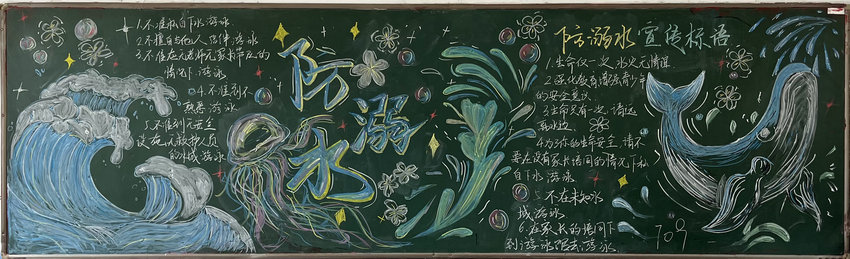 1.不准私自下水游泳
2.不擅自与他人结伴游泳
3.不准在无老师无家长带领的
情况下游泳
4.不准到不
熟悉游泳
5.不准到无安全
设施、无救护人员
的水域游泳
防溺水
防溺水 宣传标语
1.生命仅一次,水火无情谊
2.强化教育增强青少年
的安全意识
3.生命只有一次,请远
离水边
4.为了你的生命安全,请不
要在没有家长陪同的情况下私
自下水游泳
5.不在未知水
域游泳
6.在家长的陪同下
到游泳馆去游泳
709